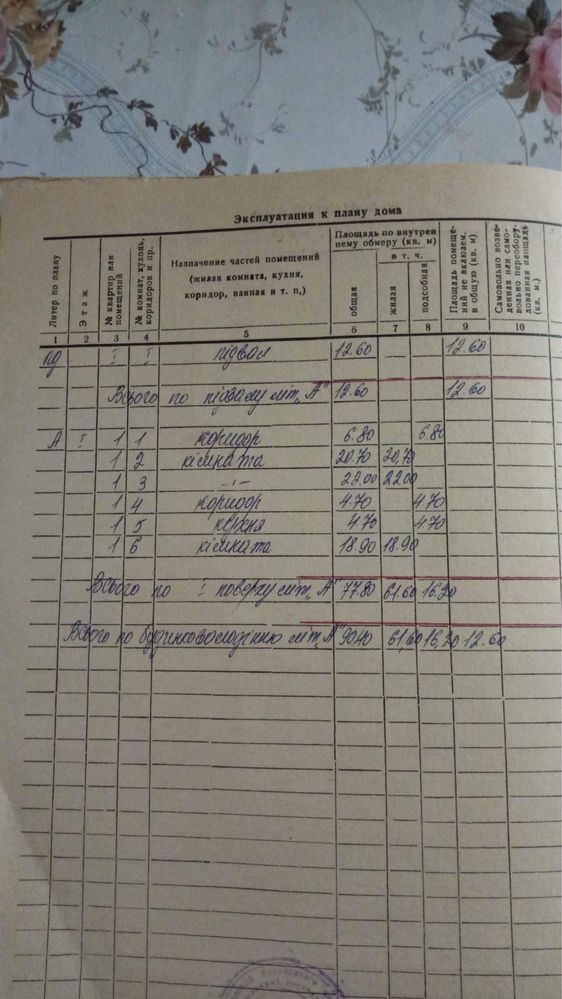 Эксплуатация к плану дома
Литер по плану
Этаж
№ квартир или помещений
№ комнат, кухонь, коридоров и пр.
Назначение частей помещений
(жилая комната, кухня,
коридор, ванная и т. п.)
Площадь по внутрен
нему обмеру (кв. м)
общая
в т. ч.
жилая
подсобная
Площадь помеще-
ний не включаем.
в общую (кв. м)
Самовольно возве-
денная или само-
вольно переобору-
дованная площадь
(кв. м.)
1 2 3 4 5 6 7 8 9 10
пд I I підвал 12.60 12.60
Всього по підвалу літ. „А" 12.60 12.60
А I 1 1 коридор 6.80 6.80
1 2 кімната 20.70 20,70
1 3 -"- 22.00 22.00
1 4 коридор 4.70 4.70
1 5 кухня 4.70 4.70
1 6 кімната 18.90 18.90
Всього по I поверху літ. „А" 77.80 61.60 16.20
Всього по будинковолодінню літ. „А" 90.40 61,60 16,20 12.60